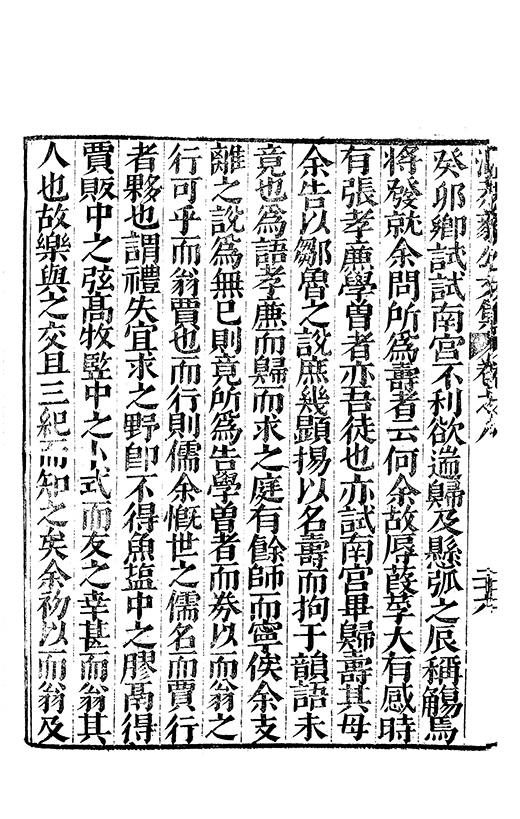 公文集 卷之八
癸卯鄉試試南宮不利欲遄歸及懸弧之辰稱觴焉
將發就余問所為壽者云何余故辱葭莩大有感時
有張孝廉學曾者亦吾徒也亦試南宮畢歸壽其母
余告以鄒魯之說庶幾顯揚以名壽而拘于韻語未
竟也為語孝廉而歸而求之庭有餘師而寧俟余支
離之說為無已則竟所為告學曾者而券以而翁之
行可乎而翁賈也而行則儒余慨世之儒名而賈行
者夥也謂禮失宜求之野卽不得魚塩中之膠鬲得
賈販中之弦高牧豎中之卜式而友之幸甚而翁其
人也故樂與之交且三紀而知之矣余初以而翁及